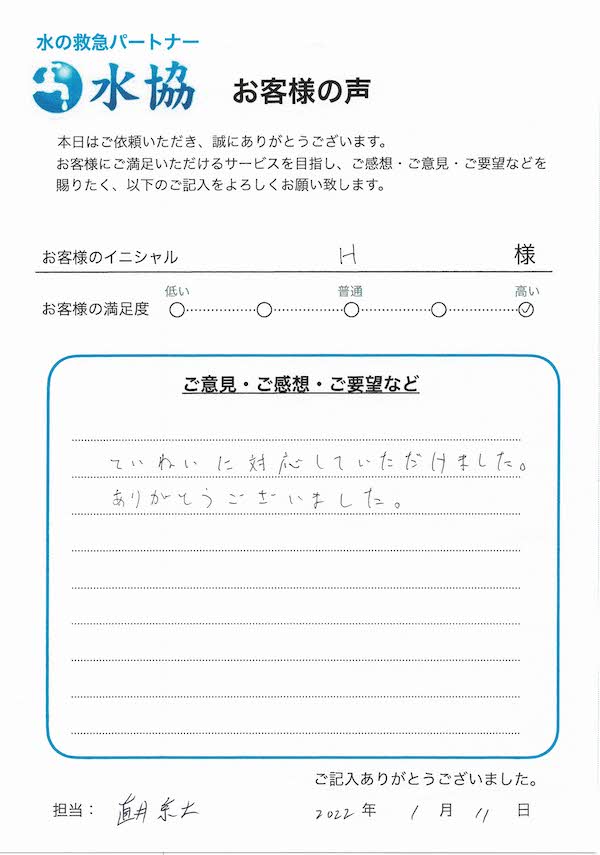 水の救急パートナー
水協 お客様の声
本日はご依頼いただき、誠にありがとうございます。
お客様にご満足いただけるサービスを目指し、ご感想・ご意見・ご要望などを
賜りたく、以下のご記入をよろしくお願い致します。
お客様のイニシャル H 様
低い 普通 高い
お客様の満足度
ご意見・ご感想・ご要望など
ていねいに対応していただけました。
ありがとうございました。
ご記入ありがとうございました。
担当： 2022 年 1 月 11 日